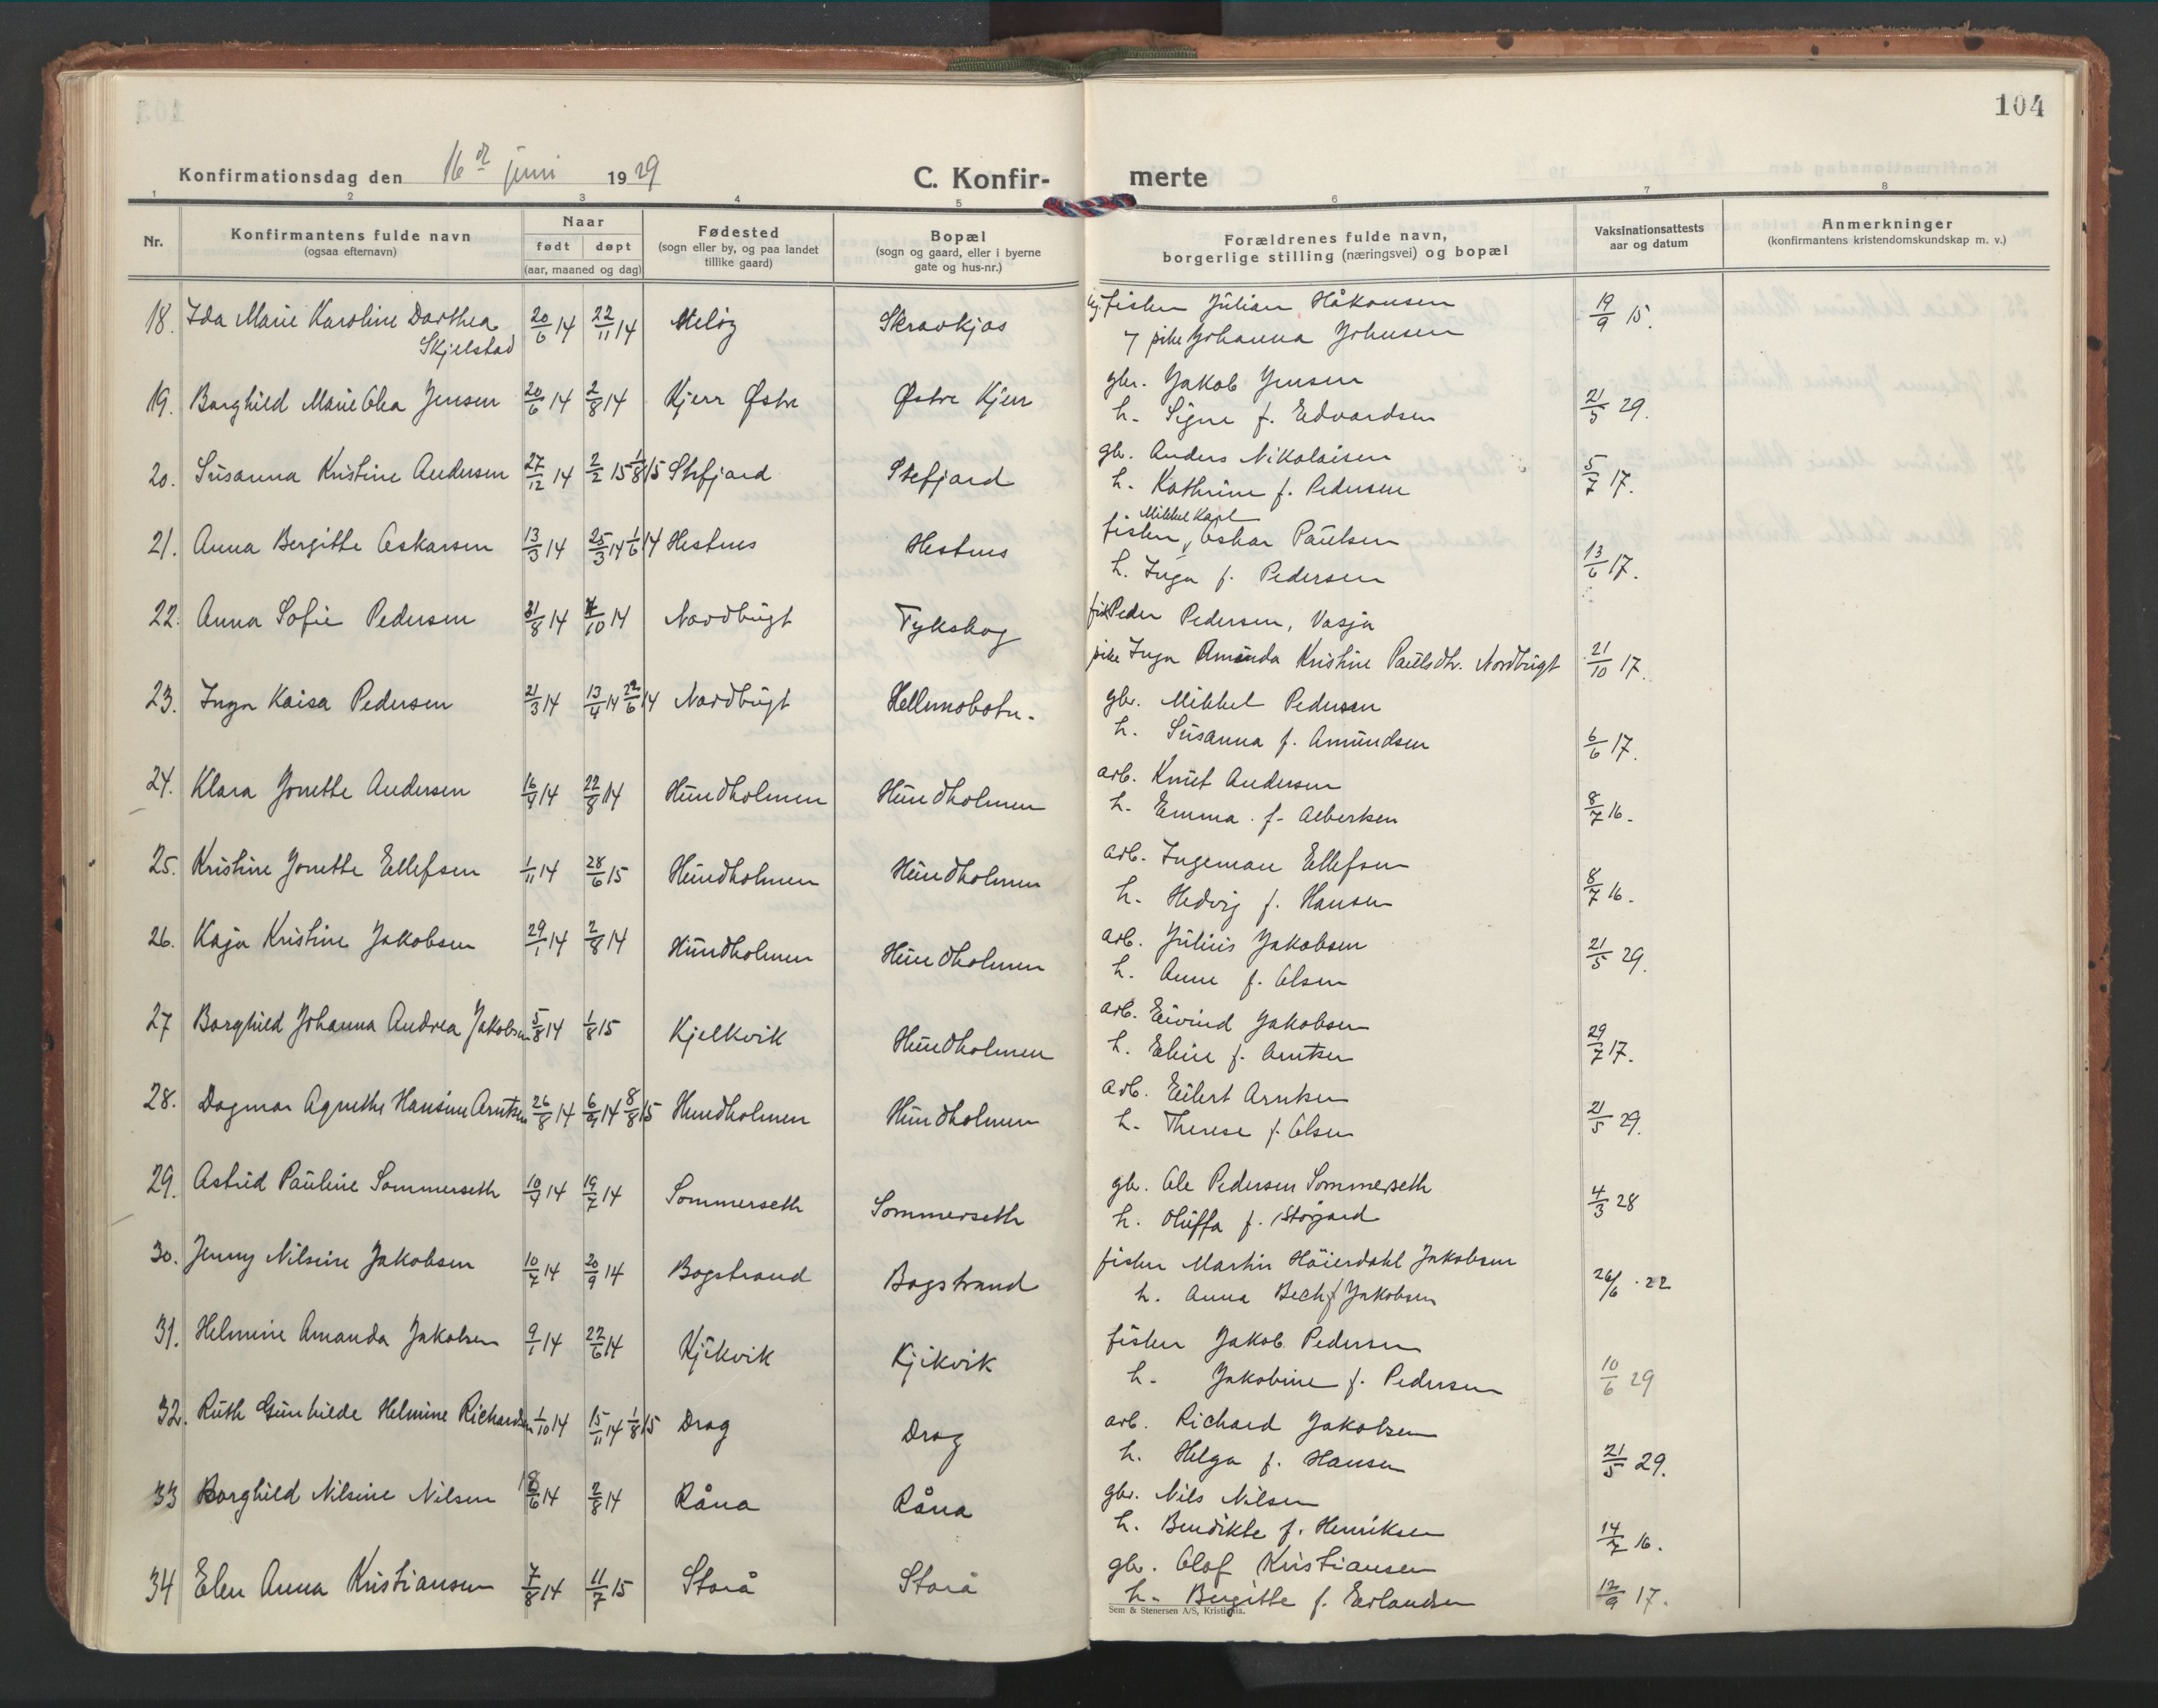 104
Konfirmationsdag den 16de juni 1929
C. Konfirmerte
1 2 3 4 5 6 7 8
Nr. | Konfirmantens fulde navn (ogsaa efternavn) | Naar født døpt (aar, maaned og dag) | Fødested (sogn eller by, og paa landet tillike gaard) | Bopæl (sogn og gaard, eller i byerne gate og hus-nr.) | Forældrenes fulde navn, borgerlige stilling (næringsvei) og bopæl | Vaksinationsattests aar og datum | Anmerkninger (konfirmantens kristendomskundskap m. v.)
18. Ida Marie Karoline Dorthea Skjelstad 20/6 14 22/11 14 Meløy Skravkjos fisker Julian Håkonsen 19/9 15.
7 pike Johanna Johnsen
19. Borghild Marie Olea Jensen 20/6 14 2/8 14 Kjerr Østre Østre Kjerr gbr. Jakob Jensen
h. Signe f. Edvardsen 21/5 29.
20. Susanna Kristine Andersen 27/12 14 2/2 15 1/8 15 Stefjord Stefjord gbr. Anders Nikolaisen
h. Kathrine f. Pedersen 5/7 17.
21. Anna Bergitte Oskarsen 13/3 14 25/3 14 1/6 14 Hestnes Hestnes fisker Mikkel Karl Oskar Paulsen
h. Inga f. Pedersen 13/6 17.
22. Anna Sofie Pedersen 31/8 14 4/10 14 Nordbugt Tykskog fisk Peder Pedersen, Vasja
pike Inga Amanda Kristine Paulsdtr. Nordbugt 21/10 17.
23. Inga Kaisa Pedersen 21/3 14 13/4 14 22/6 14 Nordbugt Hellmobotn. gbr. Mikkel Pedersen
h. Susanna f. Amundsen 6/6 17.
24. Klara Jonette Andersen 16/4 14 22/8 14 Hundholmen Hundholmen arb. Knut Andersen
h. Emma f. Albertsen 8/7 16.
25. Kristine Jonette Ellefsen 1/11 14 28/6 15 Hundholmen Hundholmen arb. Ingeman Ellefsen
h. Hedvig f. Hansen 8/7 16.
26. Kaja Kristine Jakobsen 29/1 14 2/8 14 Hundholmen Hundholmen arb. Julius Jakobsen
h. Anne f. Olsen 21/5 29.
27 Borghild Johanna Andrea Jakobsen 5/8 14 1/8 15 Kjelkvik Hundholmen arb. Eivind Jakobsen
h. Eline f. Arntsen 29/7 17.
28. Dagmar Agnethe Hansine Arntsen 26/8 14 6/9 14 8/8 15 Hundholmen Hundholmen arb. Eilert Arntsen
h. Therese f. Olsen 21/5 29.
29. Astrid Pauline Sommerseth 10/4 14 19/7 14 Sommerseth Sommerseth gbr. Ole Pedersen Sommerseth
h. Oluffa f. Storjord 4/3 28
30. Jenny Nilsine Jakobsen 10/7 14 20/9 14 Bogstrand Bogstrand fisker Martin Höierdahl Jakobsen
h. Anna Bech f Jakobsen 26/6 . 22
31. Helmine Amanda Jakobsen 9/1 14 22/6 14 Kjikvik Kjikvik fisker Jakob Pedersen
h. Jakobine f. Pedersen 10/6 29
32. Ruth Gunhilde Helmine Richardsen 1/10 14 15/11 14 1/8 15 Drag Drag arb. Richard Jakobsen
h. Helga f. Hansen 21/5 29.
33 Borghild Nilsine Nilsen 18/6 14 2/8 14 Råna Råna gbr. Nils Nilsen
h. Bendikte f. Henriksen 14/7 16.
34 Elen Anna Kristiansen 7/8 14 11/7 15 Storå Storå gbr. Olof Kristiansen
h. Bergitte f. Erlandsen 12/9 17.
Sem & Stenersen A/S, Kristiania.